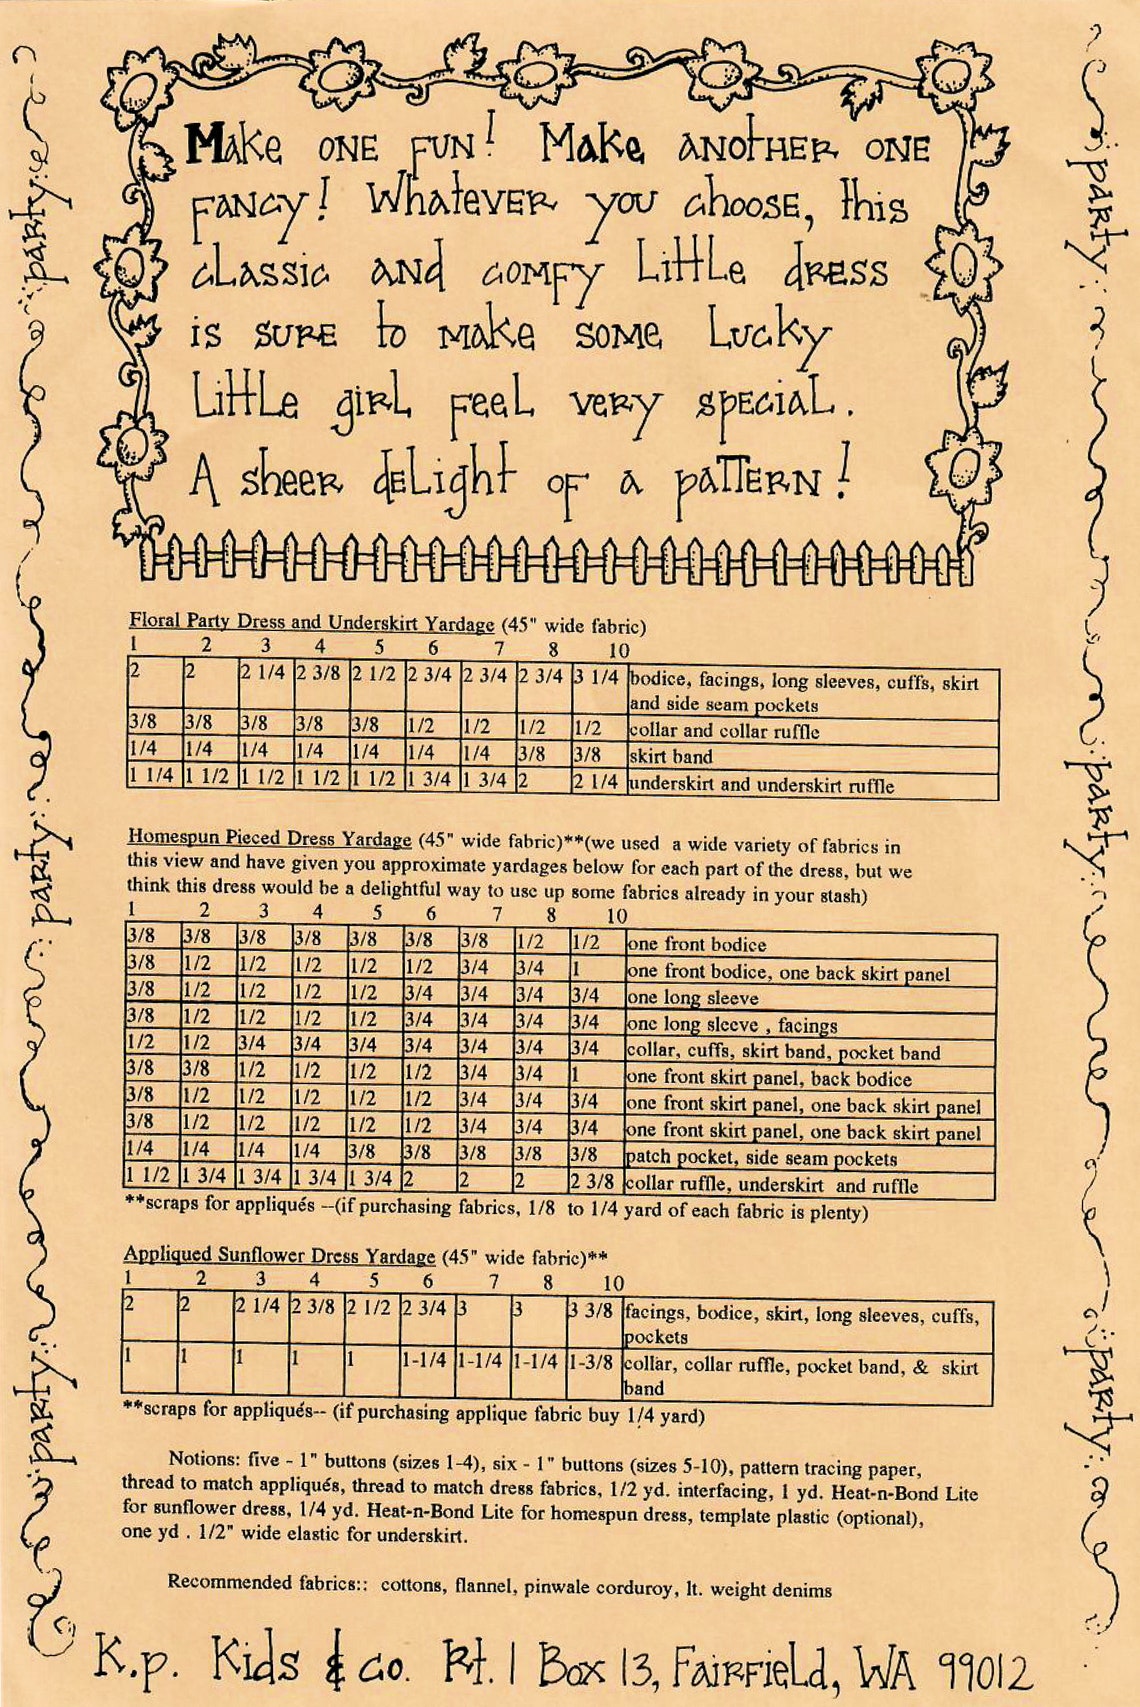 Make ONE FUN! Make ANOTHER ONE
FANCY! Whatever you choose, this
classic AND comfy Little dress
is SURE to make some Lucky
Little girl feel very special.
A sheer delight of a pattern!
party
party
party
party
party
party
Floral Party Dress and Underskirt Yardage (45" wide fabric)
1 2 3 4 5 6 7 8 10
2 2 2 1/4 2 3/8 2 1/2 2 3/4 2 3/4 2 3/4 3 1/4 bodice, facings, long sleeves, cuffs, skirt
and side seam pockets
3/8 3/8 3/8 3/8 3/8 1/2 1/2 1/2 1/2 collar and collar ruffle
1/4 1/4 1/4 1/4 1/4 1/4 1/4 3/8 3/8 skirt band
1 1/4 1 1/2 1 1/2 1 1/2 1 1/2 1 3/4 1 3/4 2 2 1/4 underskirt and underskirt ruffle
Homespun Pieced Dress Yardage (45" wide fabric)**(we used a wide variety of fabrics in
this view and have given you approximate yardages below for each part of the dress, but we
think this dress would be a delightful way to use up some fabrics already in your stash)
1 2 3 4 5 6 7 8 10
3/8 3/8 3/8 3/8 3/8 3/8 3/8 1/2 1/2 one front bodice
3/8 1/2 1/2 1/2 1/2 1/2 3/4 3/4 1 one front bodice, one back skirt panel
3/8 1/2 1/2 1/2 1/2 3/4 3/4 3/4 3/4 one long sleeve
3/8 1/2 1/2 1/2 1/2 3/4 3/4 3/4 3/4 one long sleeve , facings
1/2 1/2 3/4 3/4 3/4 3/4 3/4 3/4 3/4 collar, cuffs, skirt band, pocket band
3/8 3/8 1/2 1/2 1/2 1/2 3/4 3/4 1 one front skirt panel, back bodice
3/8 1/2 1/2 1/2 1/2 1/2 3/4 3/4 3/4 one front skirt panel, one back skirt panel
3/8 1/2 1/2 1/2 1/2 1/2 3/4 3/4 3/4 one front skirt panel, one back skirt panel
1/4 1/4 1/4 1/4 3/8 3/8 3/8 3/8 3/8 patch pocket, side seam pockets
1 1/2 1 3/4 1 3/4 1 3/4 1 3/4 2 2 2 2 3/8 collar ruffle, underskirt and ruffle
**scraps for appliqués --(if purchasing fabrics, 1/8 to 1/4 yard of each fabric is plenty)
Appliqued Sunflower Dress Yardage (45" wide fabric)**
1 2 3 4 5 6 7 8 10
2 2 2 1/4 2 3/8 2 1/2 2 3/4 3 3 3 3/8 facings, bodice, skirt, long sleeves, cuffs,
pockets
1 1 1 1 1 1-1/4 1-1/4 1-1/4 1-3/8 collar, collar ruffle, pocket band, & skirt
band
**scraps for appliqués-- (if purchasing applique fabric buy 1/4 yard)
Notions: five - 1" buttons (sizes 1-4), six - 1" buttons (sizes 5-10), pattern tracing paper,
thread to match appliqués, thread to match dress fabrics, 1/2 yd. interfacing, 1 yd. Heat-n-Bond Lite
for sunflower dress, 1/4 yd. Heat-n-Bond Lite for homespun dress, template plastic (optional),
one yd . 1/2" wide elastic for underskirt.
Recommended fabrics:: cottons, flannel, pinwale corduroy, lt. weight denims
K.p. Kids & co. Rt. 1 Box 13, Fairfield, WA 99012